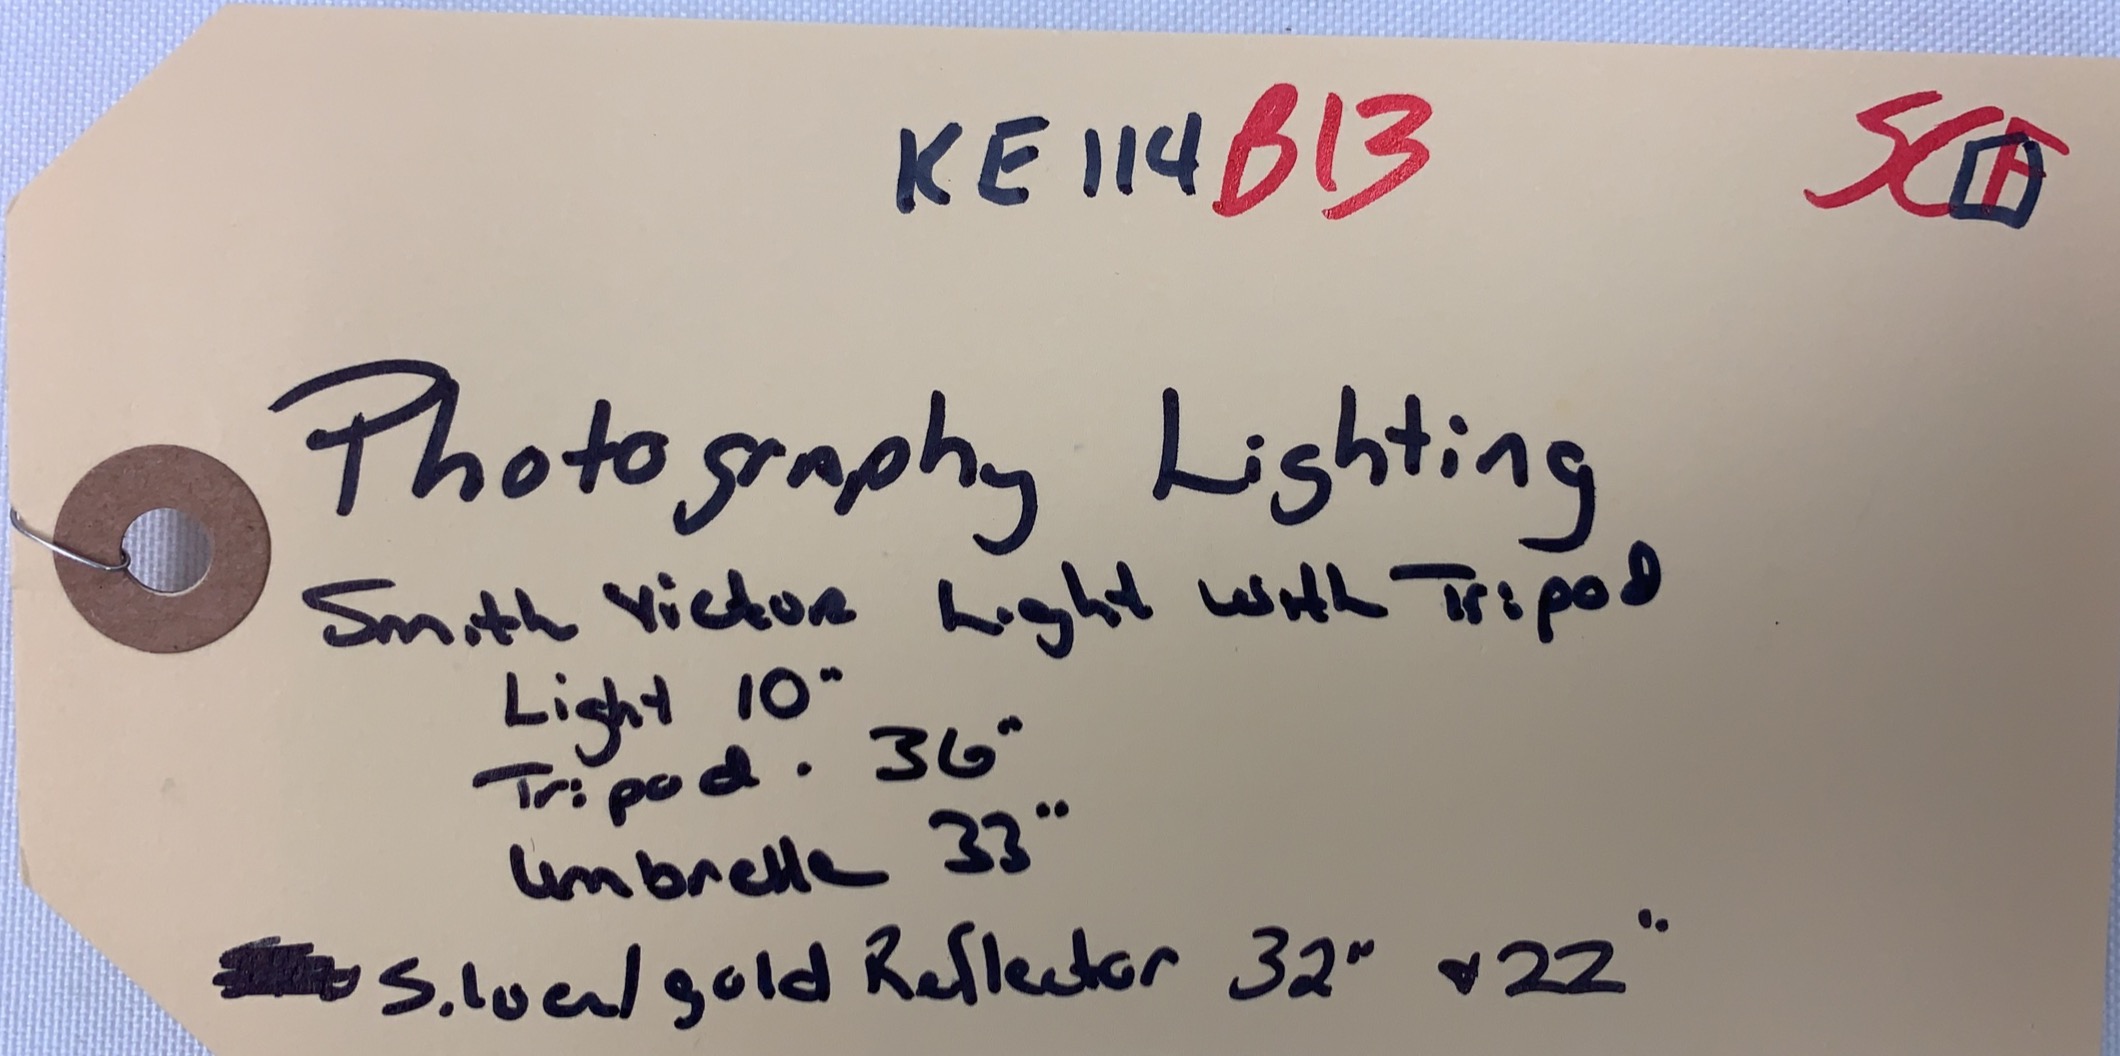 KE114 B13 SCA
Photography Lighting
Smith Victor Light with Tripod
Light 10"
Tripod. 36"
Umbrella 33"
Silver/gold Reflector 32" & 22"